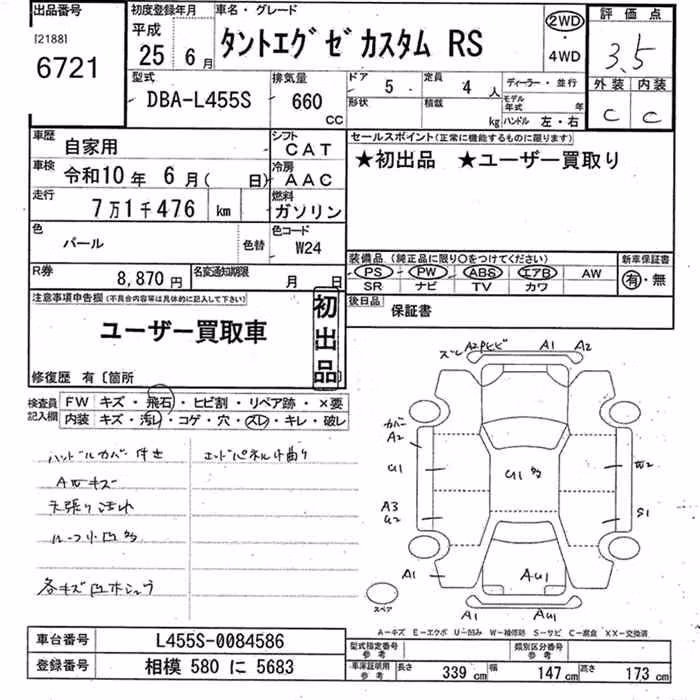 出品番号
[2188]
6721
初度登録年月
平成
25 6月
車名・グレード
タントエグゼカスタム RS
2WD
・
4WD
評価点
3.5
外装 内装
C C
型式
DBA-L455S
排気量
660
CC
ドア
5
定員
4 人
形状
積載
kg
ディーラー・並行
モデル年式 年
ハンドル 左・右
車歴
自家用
シフト
CAT
車検
令和10年 6月( 日)
冷房
AAC
走行
7万1千476 km
燃料
ガソリン
色
パール
色替
色コード
W24
R券
8,870円
名変通知期限
月 日
セールスポイント(正常に機能するものに限ります)
★初出品 ★ユーザー買取り
装備品 (純正品に限り○をつけてください)
PS PW ABS エアB AW
SR ナビ TV カワ
新車保証書
有・無
後日品
保証書
注意事項申告欄(不具合内容等は具体的に記入して下さい)
ユーザー買取車
初出品
修復歴 有〔箇所
検査員記入欄
FW キズ・飛石・ヒビ割・リペア跡・×要
内装 キズ・汚レ・コゲ・穴・スレ・キレ・破レ
ハンドルカバー付き
エンドパネル小曲り
AWキズ
天張り汚れ
ルーフ小凹多
ズレ A2 Pヒビ A1 A2
カバー
A2
U1
U1多
W2
A3
U2
S1
A1
AU1
A1 AU1
スペア
A−キズ E−エクボ U−凹み W−補修跡 S−サビ C−腐食 XX−交換済
車台番号
L455S-0084586
登録番号
相模 580 に 5683
型式指定番号
参考
類別区分番号
参考
車庫証明用
参考
長さ 339 cm 幅 147 cm 高さ 173 cm